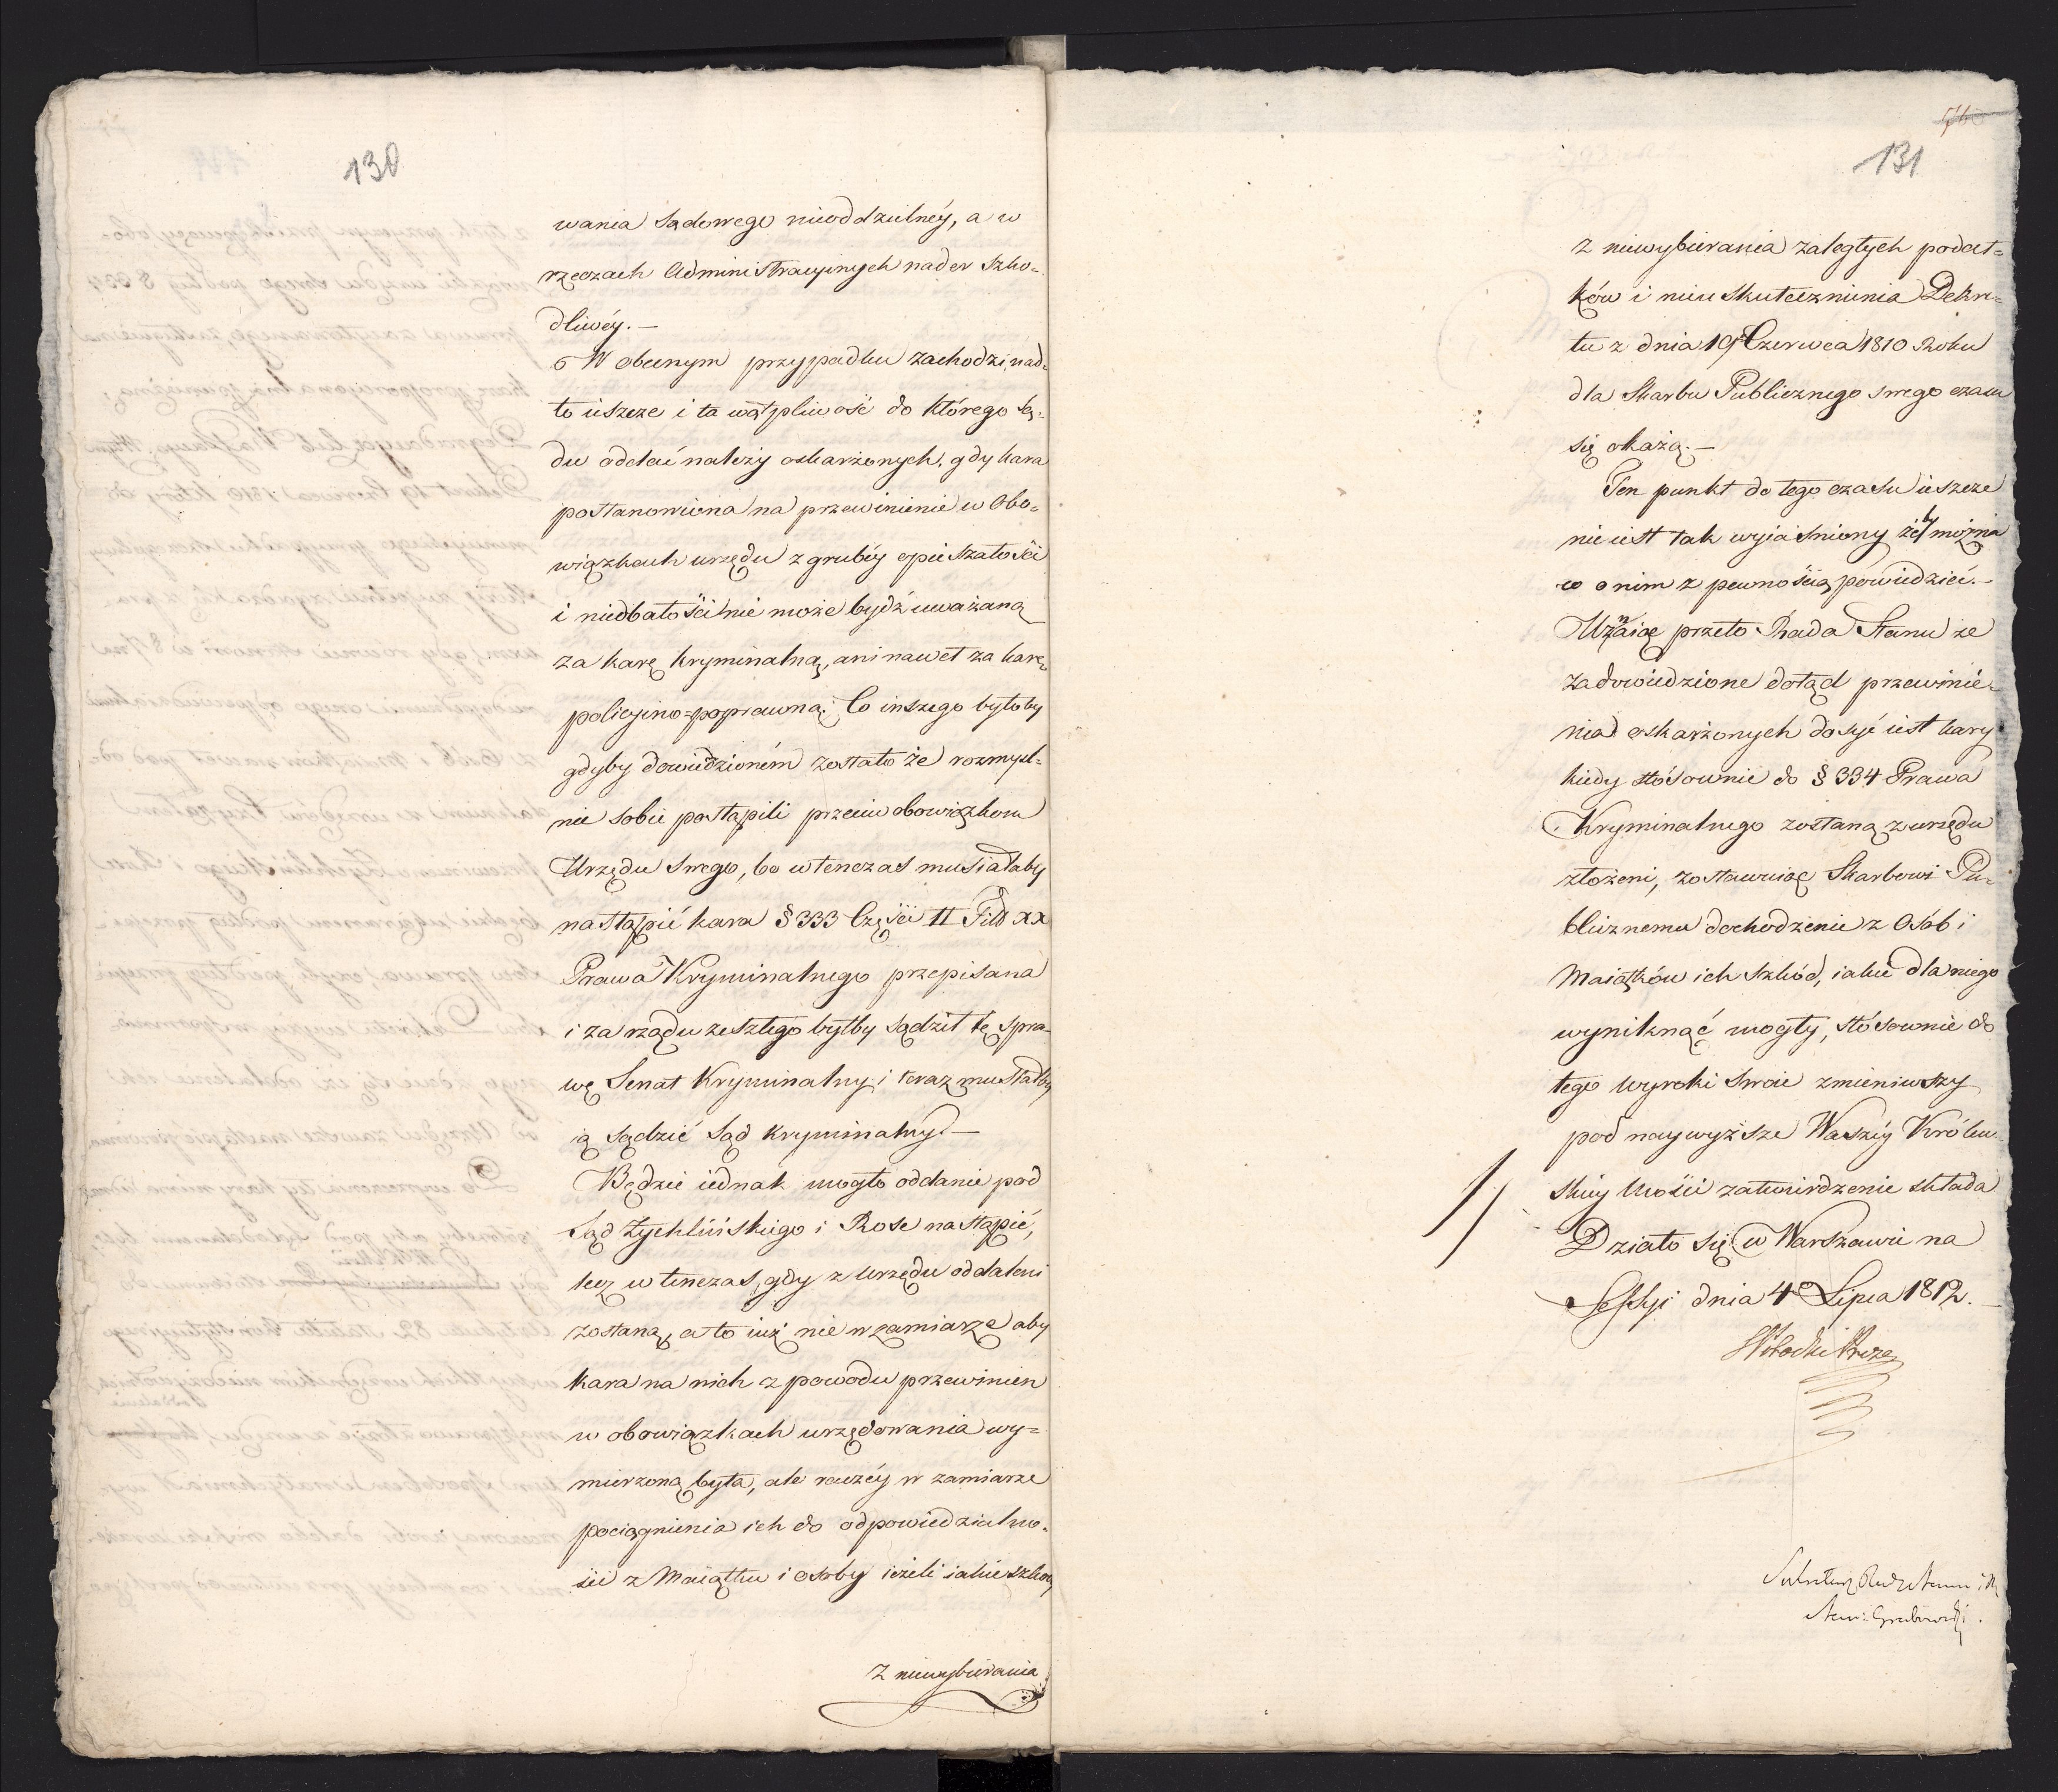 130
wania Sądowego nieoddzielnéy, a w
rzeczach Administracyinych nader szko=
dliwéy.—
W obecnym przypadku zachodzi nad=
to ieszcze i ta wątpliwość do którego Są=
du oddać należy oskarżonych, gdy kara
postanowiona na przewinienie w Obo=
wiązkach urzędu z grubéy opieszałości
i niedbałości nie może bydź uważaną
za karę kryminalną, ani nawet za karę
policyino=poprawną. Co inszego byłoby
gdyby dowiedzioném zostało że rozmyśl=
nie sobie postąpili przeciw obowiązkom
Urzędu swego, bo wtenczas musiałaby
nastąpić kara § 333 Części II Tit: XX
Prawa Kryminalnego przepisana
i za rządu zeszłego byłby sądził tę spra=
wę Senat Kryminalny i teraz musiałby
ią sądzić Sąd Kryminalny.—
Będzie iednak mogło oddanie pod
Sąd Żychlińskiego i Rose nastąpić,
lecz wtenczas, gdy z Urzędu oddaleni
zostaną, a to iuż nie w zamiarze aby
kara na nich z powodu przewinień
w obowiązkach urzędowania wy=
mierzoną była, ale raczéy w zamiarze
pociągnienia ich do odpowiedzialno=
ści z Maiątku i osoby ieżeli iakie szkody
z niewybierania
76
131
z niewybierania zaległych podat=
ków i nieuskutecznienia Dekre=
tu z dnia 19 Czerwca 1810 Roku
dla Skarbu Publicznego swego czasu
się okażą.—
Ten punkt do tego czasu ieszcze
nie iest tak wyiaśniony żeby można
o nim z pewnością powiedzieć.—
Uznaiąc przeto Rada Stanu że
za dowiedzione dotąd przewinie=
nia oskarżonych dosyć iest kary
kiedy stósownie do § 334 Prawa
Kryminalnego zostaną z urzędu
złożeni, zostawuiąc Skarbowi Pu=
blicznemu dochodzenie z Osób i
Maiątków ich szkód, iakie dla niego
wyniknąć mogły, stósownie do
tego wyroki swoie zmieniwszy
pod naywyższe Waszéy Królew=
skiéy Mości zatwierdzenie składa
Działo się w Warszawie na
Sessyi dnia 4º Lipca 1812.
Sekretarz Rady Stanu
Stan: Grabowski.